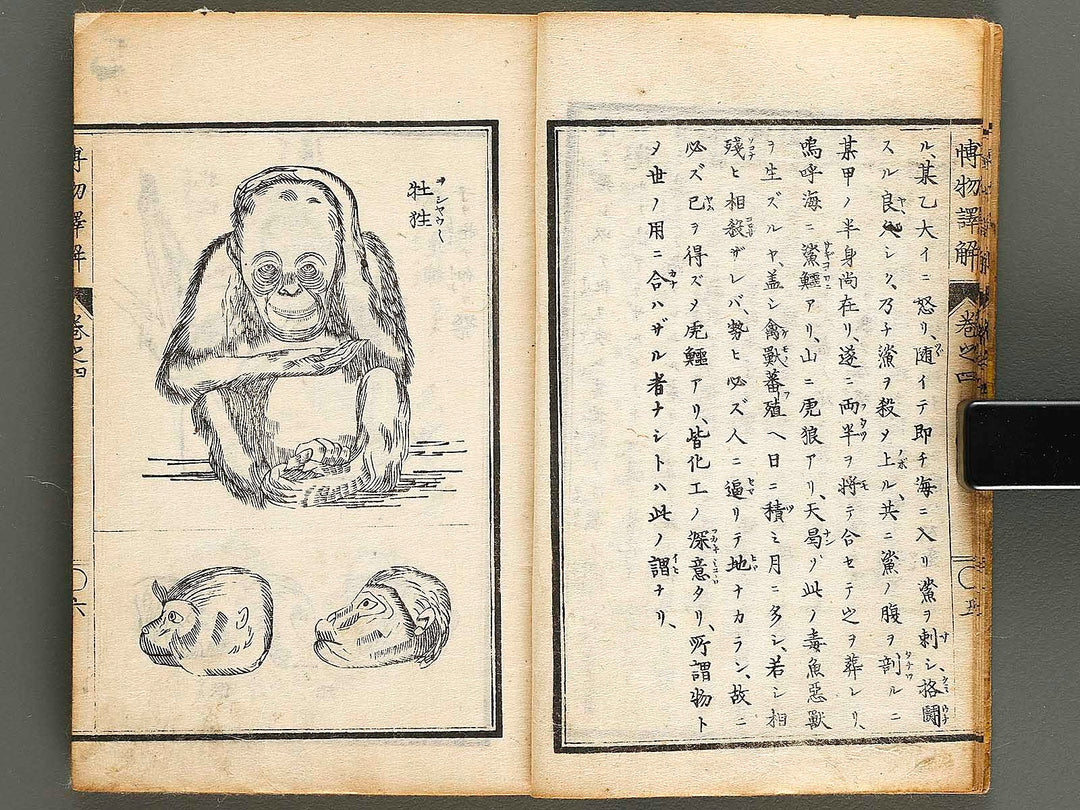 博物譯解 巻之四 〇五
ル、某乙大イニ怒リ、随イテ即チ海ニ入リ鯊ヲ刺シ、格闘
スル良ヤシク、乃チ鯊ヲ殺メ上ル、共ニ鯊ノ腹ヲ剖ルニ
某甲ノ半身尚在リ、遂ニ両半ヲ将テ合セテ之ヲ葬レリ、
嗚呼海ニ鯊鱷アリ、山ニ虎狼アリ、天曷ゾ此ノ毒魚惡獸
ヲ生ズルヤ、盖シ禽獸蕃殖ヘ日ニ積ミ月ニ多シ、若シ相
残ヒ相殺ザレバ、勢ヒ必ズ人ニ逼リテ地ナカラン、故ニ
必ズ已ヲ得ズメ虎鱷アリ、皆化工ノ深意タリ、所謂物ト
メ世ノ用ニ合ハザル者ナシトハ此ノ謂ナリ、
牡狌
博物譯解 巻之四 〇六